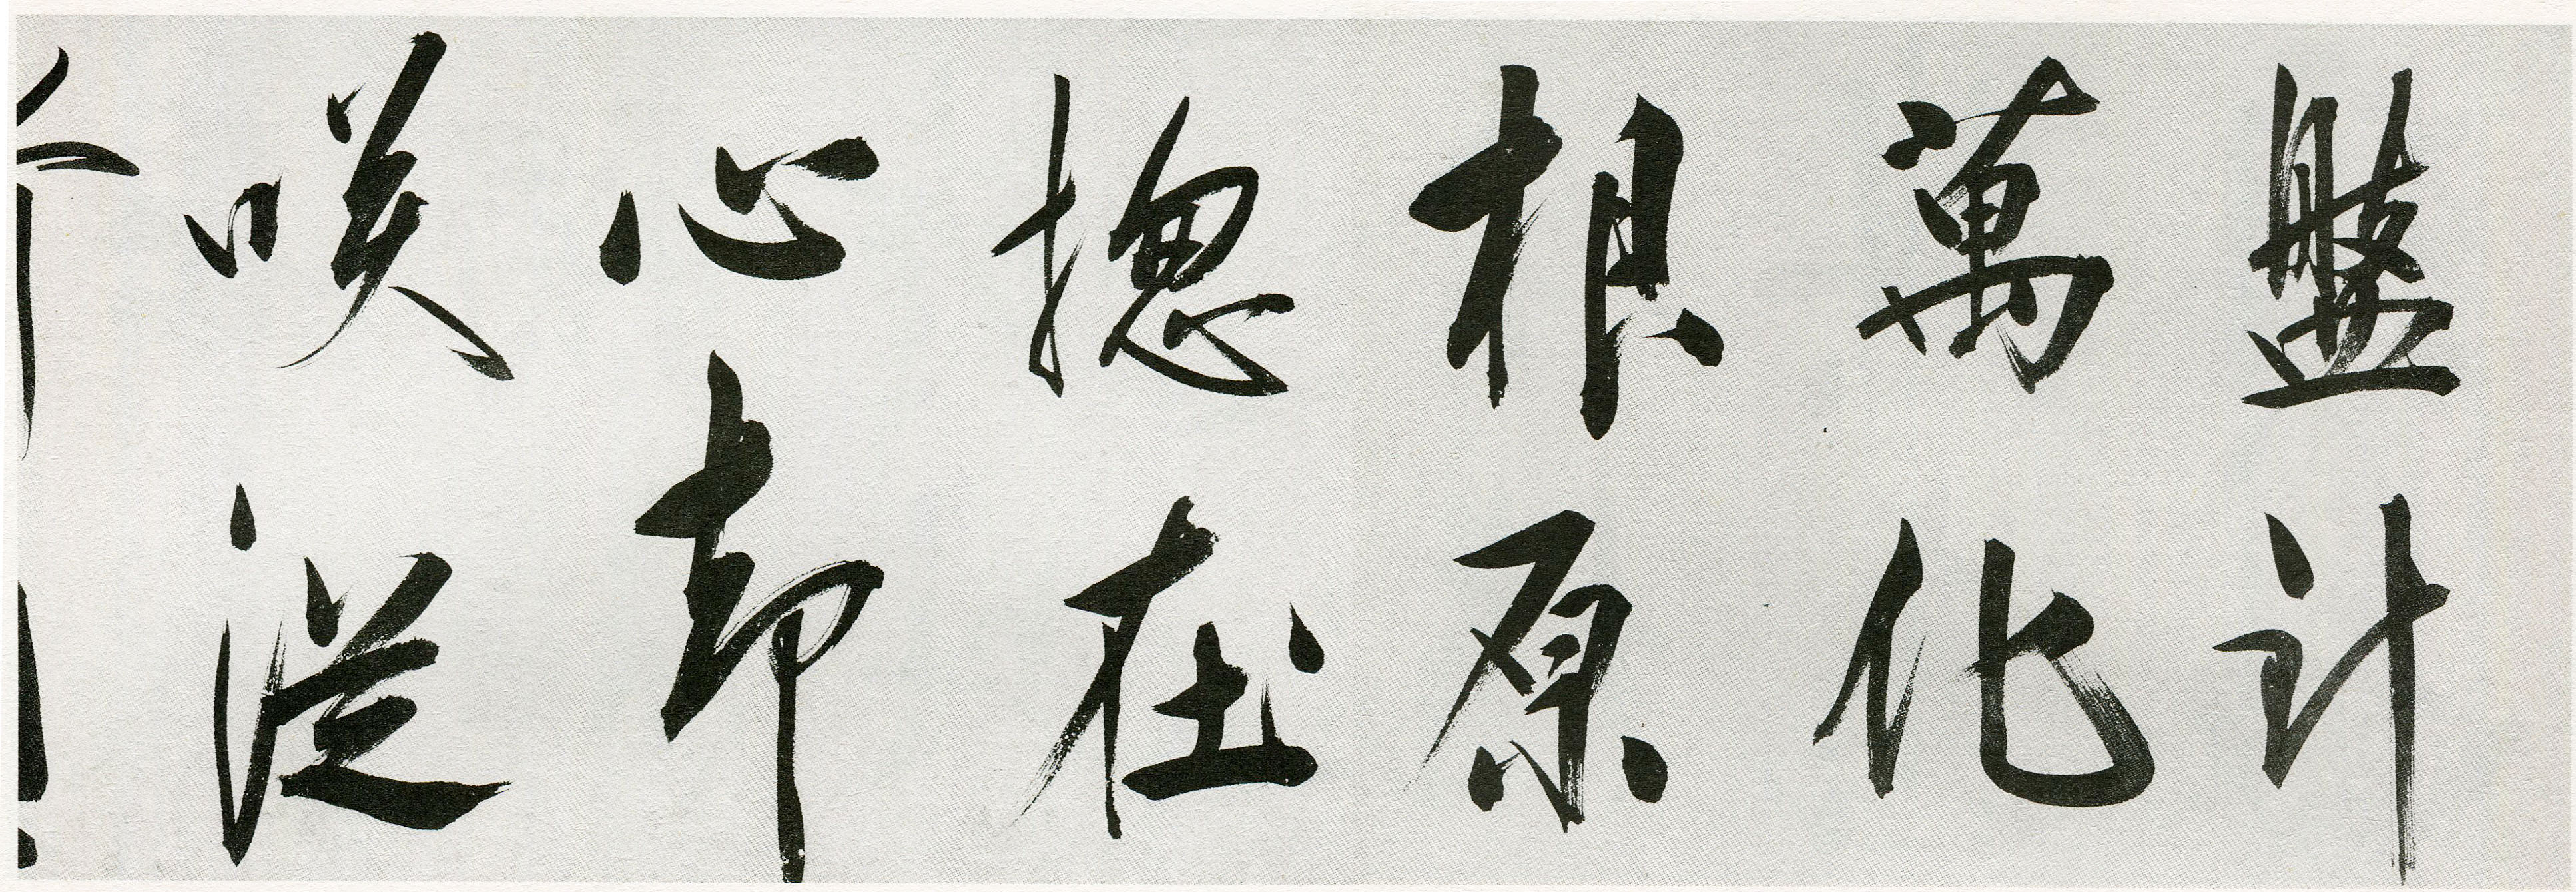 盤計
萬化
根原
揔在
心却
咲從